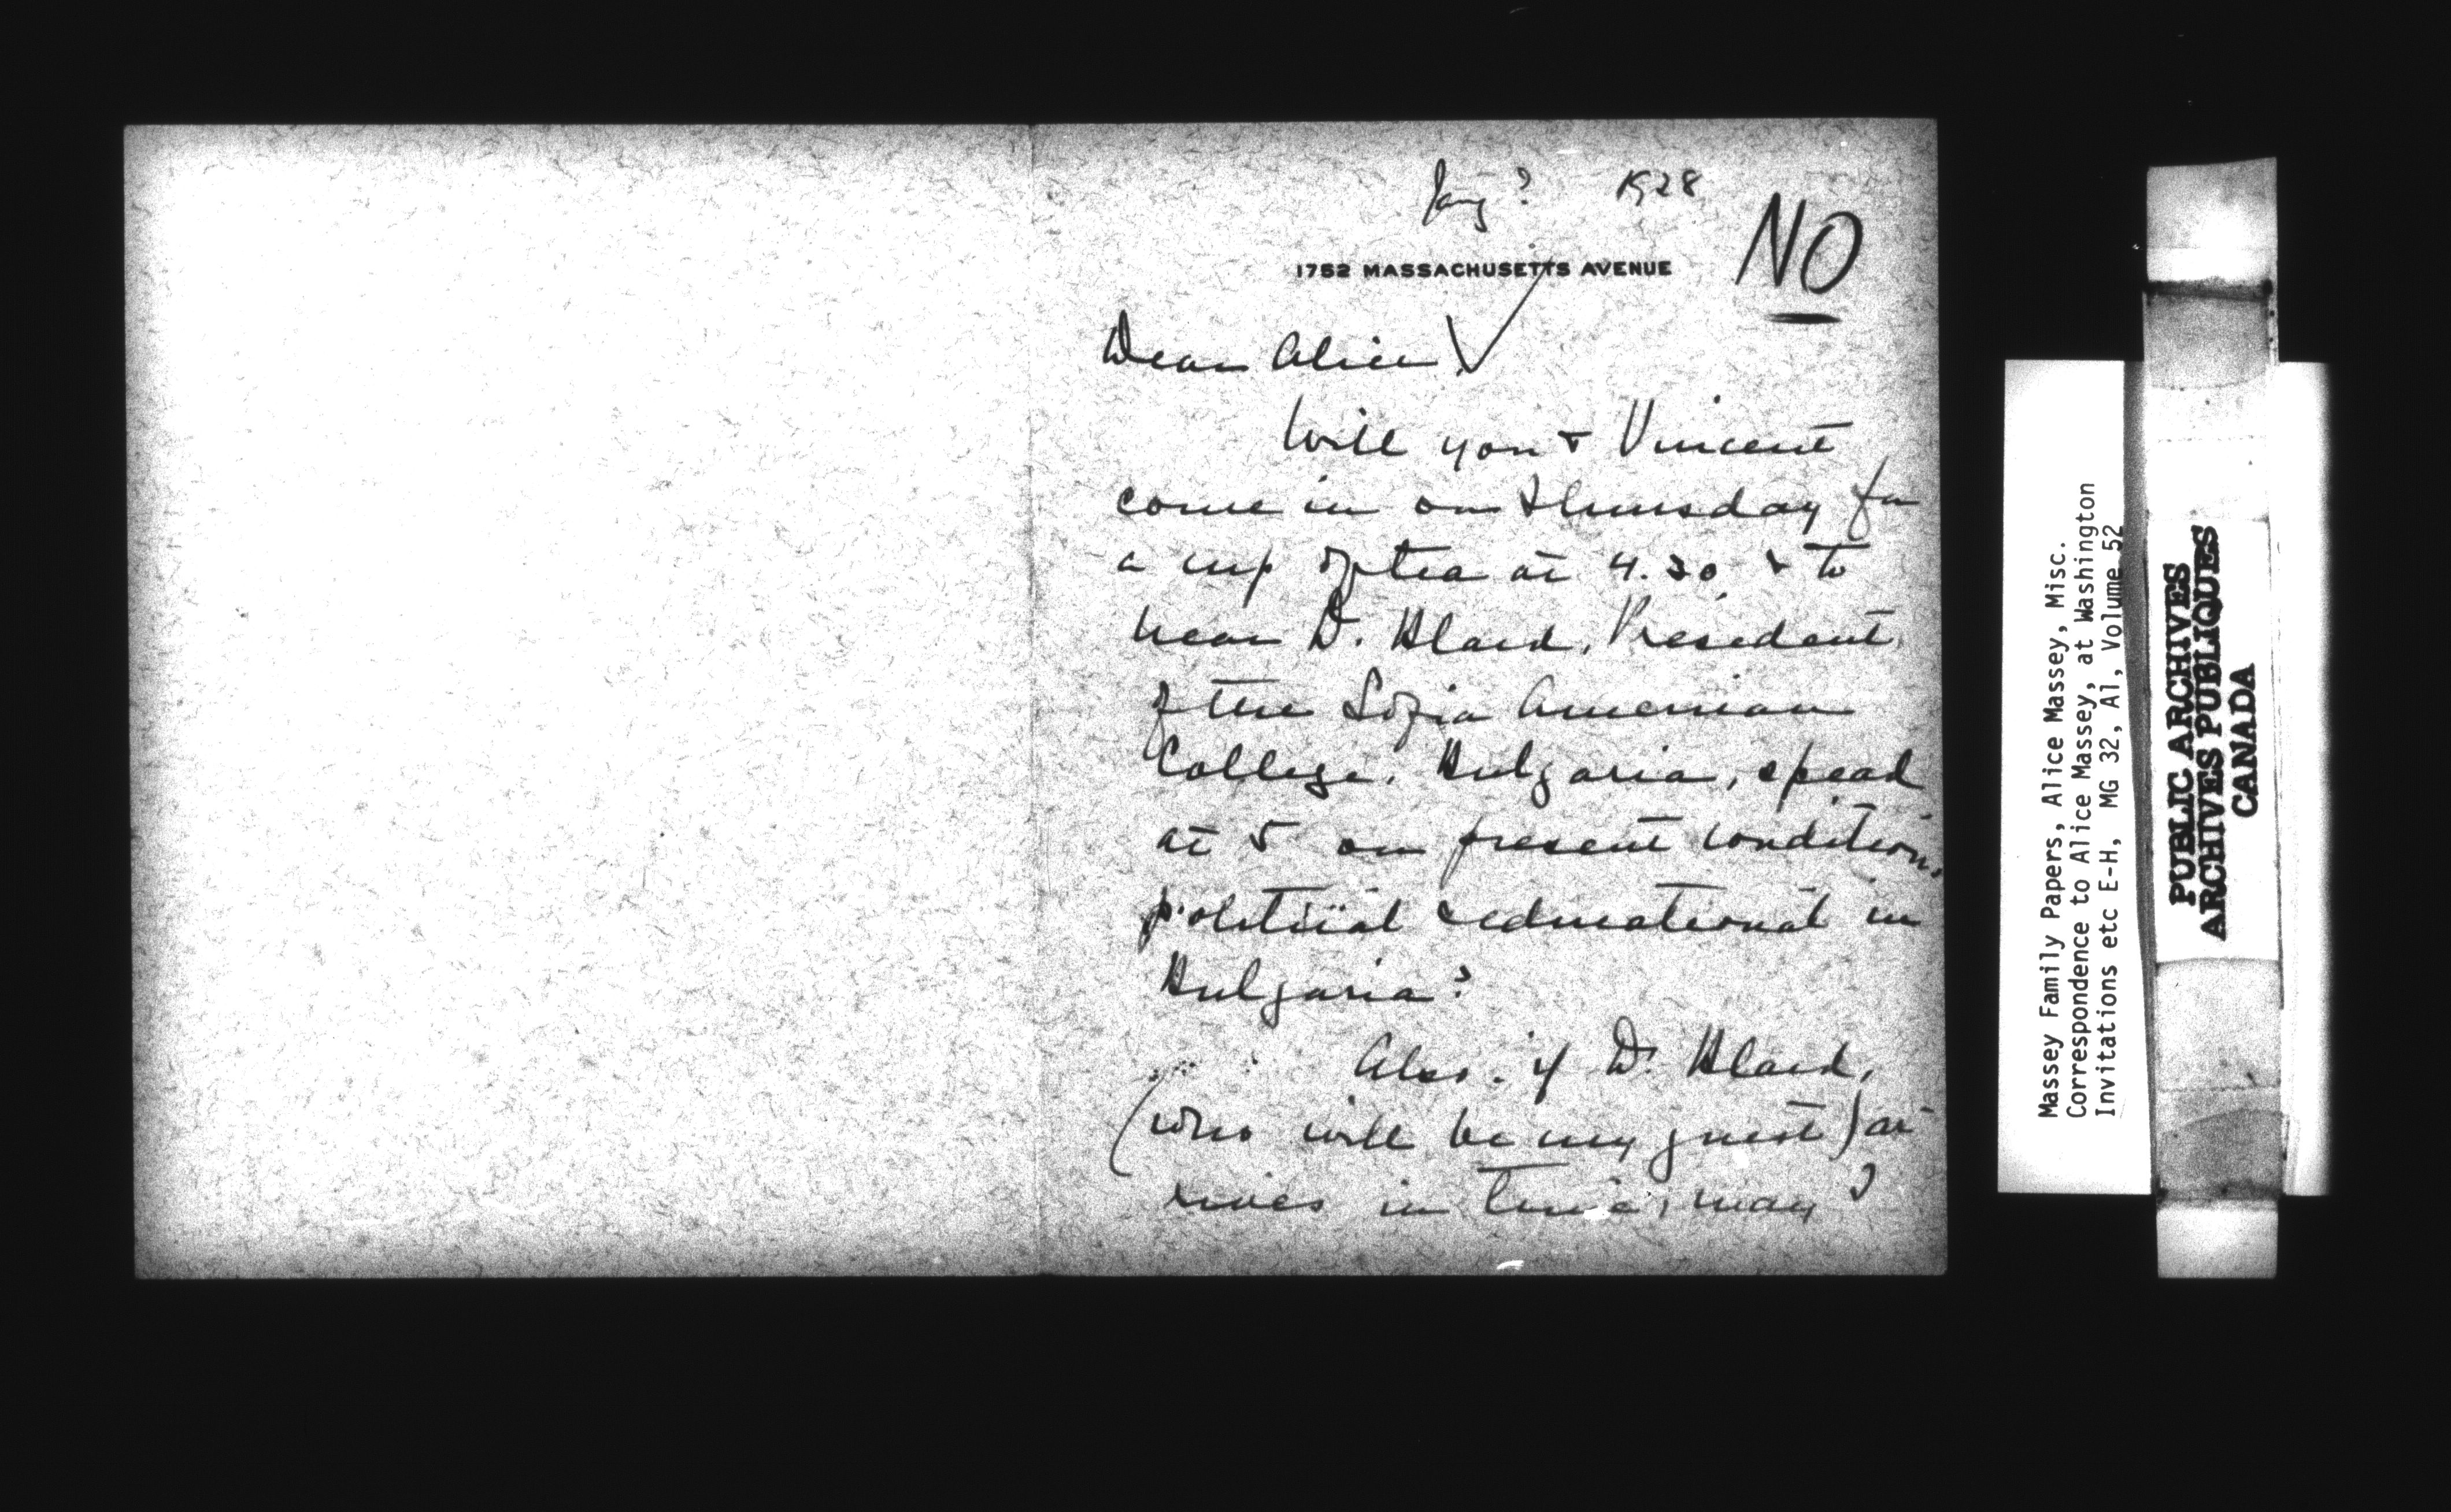 Jany ? 1928
NO
1752 MASSACHUSETTS AVENUE
Dear Alice
Will you & Vincent
come in on Thursday for
a cup of tea at 4.30 & to
hear Dr. Black, President
of the Sofia American
College, Bulgaria, speak
at 5 on present conditions,
political & educational in
Bulgaria?
Also, if Dr. Black,
(who will be my guest) ar-
rives in time, may I
Massey Family Papers, Alice Massey, Misc.
Correspondence to Alice Massey, at Washington
Invitations etc E-H, MG 32, A1, Volume 52
PUBLIC ARCHIVES
ARCHIVES PUBLIQUES
CANADA